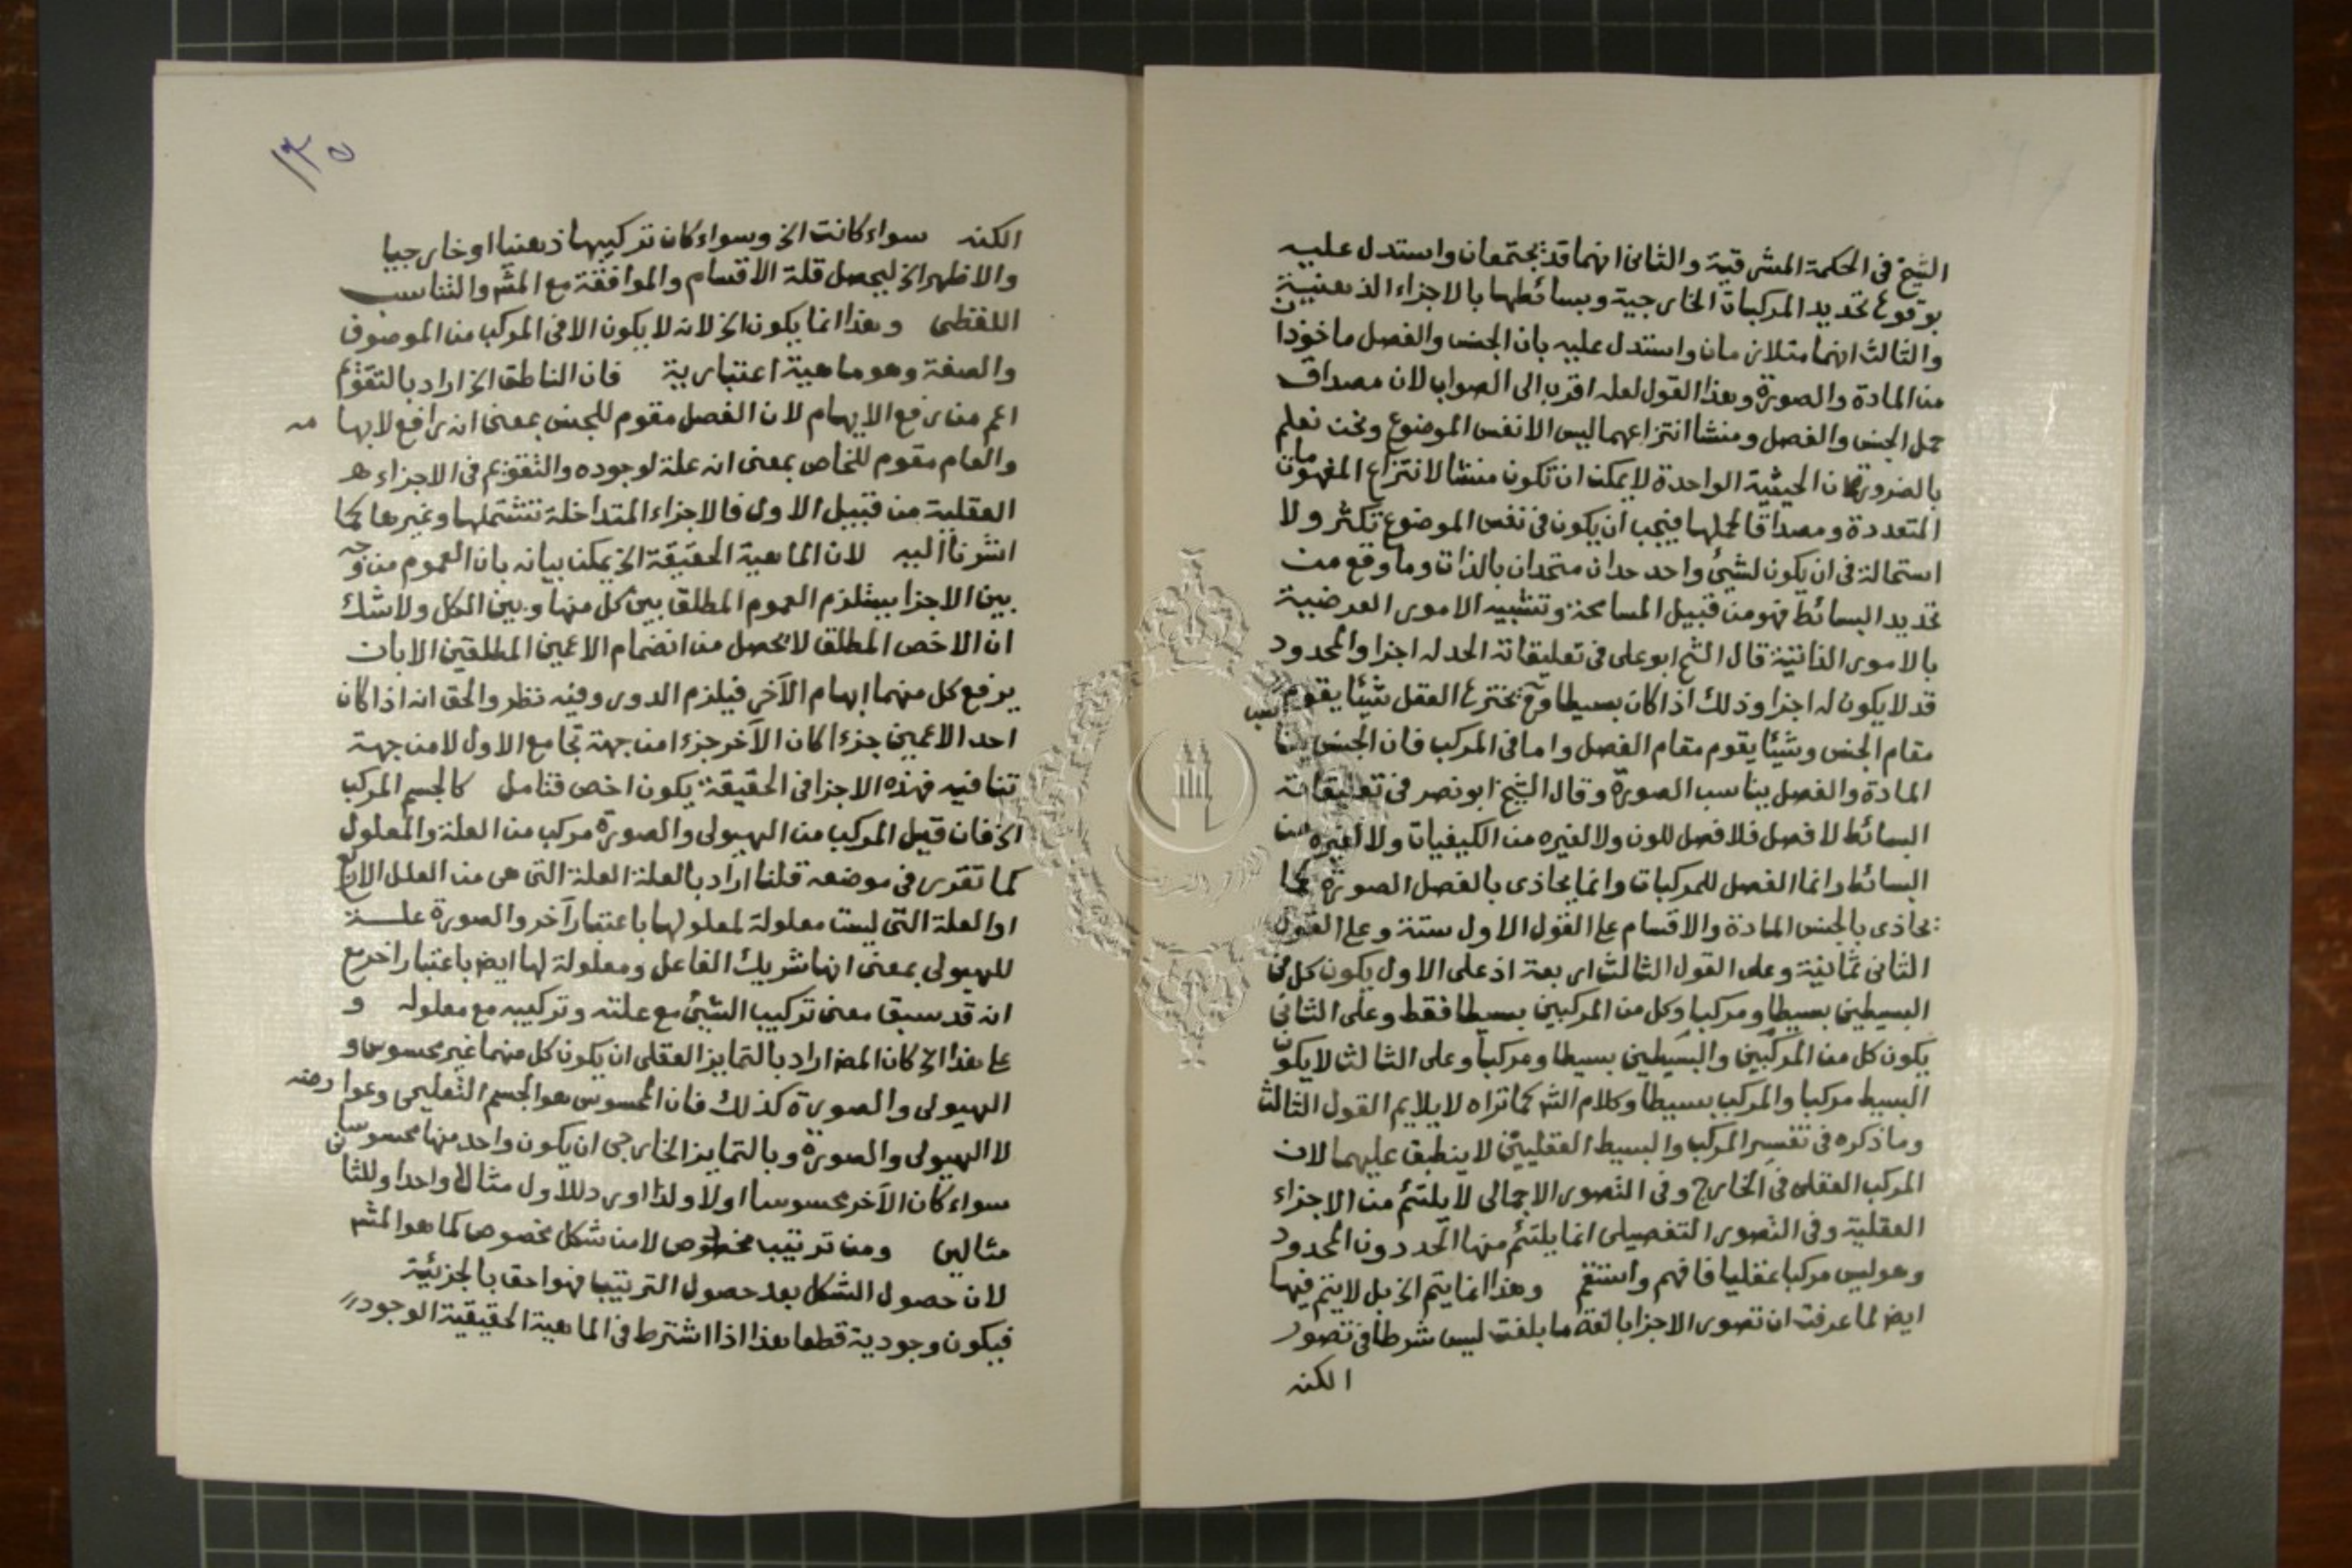 الشيخ فى الحكمة المشرقية والثانى انهما قد يجتمعان واستدل عليه
بوقوع تحديد المركبات الخارجية وبسائطها بالاجزاء الذهنية
والثالث انهما متلازمان واستدل عليه بان الجنس والفصل ماخوذان
من المادة والصورة وهذا القول لعله اقرب الى الصواب لان مصداق
حمل الجنس والفصل ومنشا انتزاعهما ليس الا نفس الموضوع ونحن نعلم
بالضرورة ان الحيثية الواحدة لا يمكن ان تكون منشا لانتزاع المفهومات
المتعددة ومصداقا لحملها فيجب ان يكون فى نفس الموضوع تكثر ولا
استحالة فى ان يكون لشئ واحد حدان متحدان بالذات وما وقع من
تحديد البسائط فهو من قبيل المسامحة وتشبيه الامور العرضية
بالامور الذاتية قال الشيخ ابو على فى تعليقاته الحد له اجزا والمحدود
قد لا يكون له اجزا وذلك اذا كان بسيطا وح يخترع العقل شيئا يقوم
مقام الجنس وشيئا يقوم مقام الفصل واما فى المركب فان الجنس يناسب
المادة والفصل يناسب الصورة وقال الشيخ ابو نصر فى تعليقاته
البسائط لا فصل فلا فصل للون ولا لغيره من الكيفيات ولا لغيره من
البسائط وانما الفصل للمركبات وانما يحاذى بالفصل الصورة كما
يحاذى بالجنس المادة والاقسام على القول الاول ستة وعلى القول
الثانى ثمانية وعلى القول الثالث اربعة اذ على الاول يكون كل من
البسيطين بسيطا ومركبا وكل من المركبين بسيطا فقط وعلى الثانى
يكون كل من المركبين والبسيطين بسيطا ومركبا وعلى الثالث لا يكون
البسيط مركبا والمركب بسيطا وكلام الش كما تراه لا يلايم القول الثالث
وما ذكره فى تفسير المركب والبسيط العقليين لا ينطبق عليهما لان
المركب العقلى فى الخارج وفى التصور الاجمالى لا يلتئم من الاجزاء
العقلية وفى التصور التفصيلى انما يلتئم منها الحد دون المحدود
وهو ليس مركبا عقليا فافهم واستقم وهذا انما يتم الخ بل لا يتم فيها
ايض لما عرفت ان تصور الاجزا بالغة ما بلغت ليس شرطا فى تصور
الكنه
١٣٥
الكنه سواء كانت الخ وسواء كان تركيبها ذهنيا او خارجيا
والاظهر الخ ليحصل قلة الاقسام والموافقة مع المش والتناسب
اللفظى وهذا انما يكون الخ لانه لا يكون الا فى المركب من الموصوف
والصفة وهو ماهية اعتبارية فان الناطق الخ اراد بالتقويم
اعم من رفع الابهام لان الفصل مقوم للجنس بمعنى انه رافع لابهامه
والعام مقوم للخاص بمعنى انه علة لوجوده والتقويم فى الاجزاء
العقلية من قبيل الاول فالاجزاء المتداخلة تشتملها وغيرها كما
اشرنا اليه لان الماهية الحقيقة الخ يمكن بيانه بان العموم من وجه
بين الاجزا يستلزم العموم المطلق بين كل منها وبين الكل ولا شك
ان الاخص المطلق لا يحصل من انضمام الاعمين المطلقين الا بان
يرفع كل منهما ابهام الآخر فيلزم الدور وفيه نظر والحق انه اذا كان
احد الاعمين جزءا كان الآخر جزءا من جهة تجامع الاول لا من جهة
تنافيه فهذه الاجزا فى الحقيقة يكون اخص فتامل كالجسم المركب
الخ فان قيل المركب من الهيولى والصورة مركب من العلة والمعلول
كما تقرر فى موضعه قلنا اراد بالعلة العلة التى هى من العلل الاربع
او العلة التى ليست معلولة لمعلولها باعتبار آخر والصورة علة
للهيولى بمعنى انها شريك الفاعل ومعلولة لها ايض باعتبار اخر مع
انه قد سبق معنى تركيب الشئ مع علته وتركيبه مع معلوله و
على هذا الخ كان المص اراد بالتمايز العقلى ان يكون كل منهما غير محسوس و
الهيولى والصورة كذلك فان المحسوس هو الجسم التعليمى وعوارضه
لا الهيولى والصورة وبالتمايز الخارجى ان يكون واحد منها محسوسا
سواء كان الآخر محسوسا اولا ولذا اورد للاول مثالا واحدا وللثانى
مثالين ومن ترتيب مخصوص لا من شكل مخصوص كما هو المش
لان حصول الشكل بعد حصول الترتيب فهو احق بالجزئية
فيكون وجودية قطعا هذا اذا اشترط فى الماهية الحقيقية الوجود